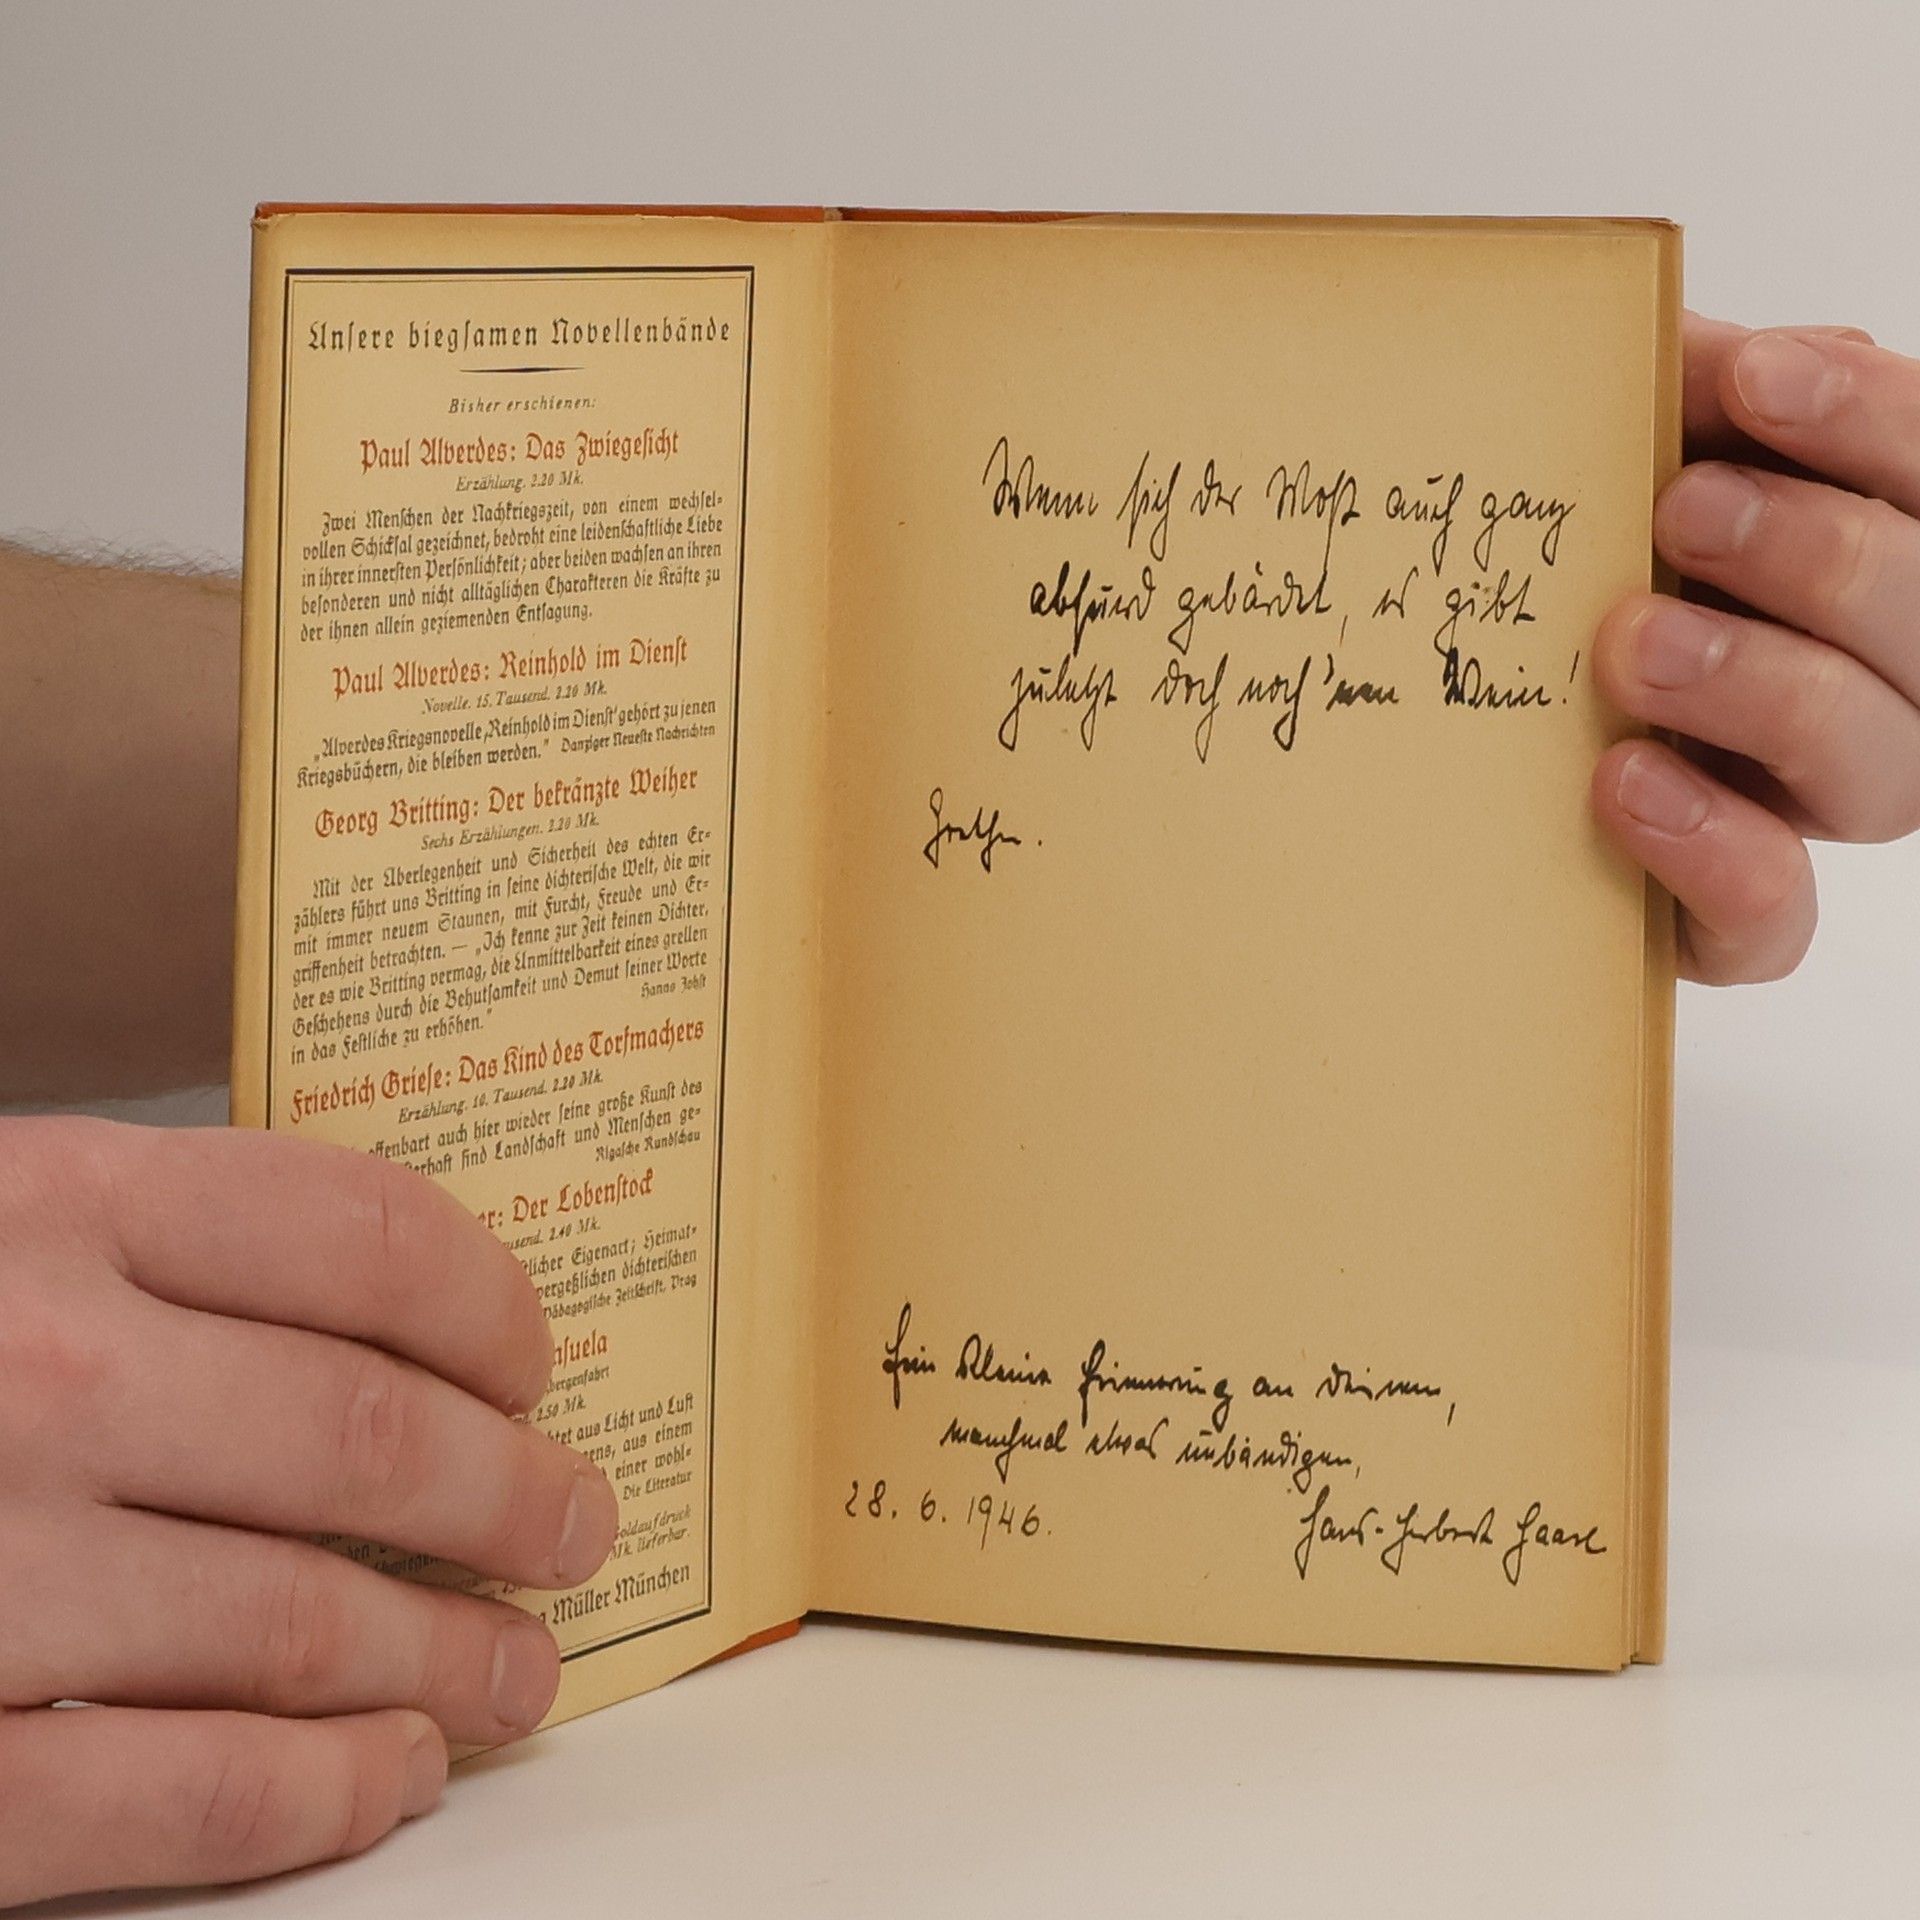 Unsere biegsamen Novellenbände
Bisher erschienen:
Paul Alverdes: Das Zwiegesicht
Erzählung. 2.20 Mk.
Zwei Menschen der Nachkriegszeit, von einem wechsel-
vollen Schicksal gezeichnet, bedroht eine leidenschaftliche Liebe
in ihrer innersten Persönlichkeit; aber beiden wachsen an ihren
besonderen und nicht alltäglichen Charakteren die Kräfte zu
der ihnen allein geziemenden Entsagung.
Paul Alverdes: Reinhold im Dienst
Novelle. 15. Tausend. 2.20 Mk.
„Alverdes Kriegsnovelle ‚Reinhold im Dienst‘ gehört zu jenen
Kriegsbüchern, die bleiben werden.“ Danziger Neueste Nachrichten
Georg Britting: Der bekränzte Weiher
Sechs Erzählungen. 2.20 Mk.
Mit der Überlegenheit und Sicherheit des echten Er-
zählers führt uns Britting in seine dichterische Welt, die wir
mit immer neuem Staunen, mit Furcht, Freude und Er-
griffenheit betrachten. — „Ich kenne zur Zeit keinen Dichter,
der es wie Britting vermag, die Unmittelbarkeit eines grellen
Geschehens durch die Behutsamkeit und Demut seiner Worte
in das Festliche zu erhöhen.“
Hanns Johst
Friedrich Griese: Das Kind des Torfmachers
Erzählung. 10. Tausend. 2.20 Mk.
offenbart auch hier wieder seine große Kunst des
sind Landschaft und Menschen ge-
Rigasche Rundschau
er: Der Lobenstock
usend. 2.40 Mk.
licher Eigenart; Heimat-
vergeßlichen dichterischen
Pädagogische Zeitschrift, Prag
nsuela
bergenfahrt
nd. 2.50 Mk.
htet aus Licht und Luft
ens, aus einem
einer wohl-
Die Literatur
Goldaufdruck
Mk. lieferbar.
Müller München
Wenn sich der Most auch ganz
absurd gebärdet, es gibt
zuletzt doch noch 'nen Wein!
Goethe.
Eine kleine Erinnerung an deinen,
manchmal etwas unbändigen,
28. 6. 1946.
Hans-Herbert Haase